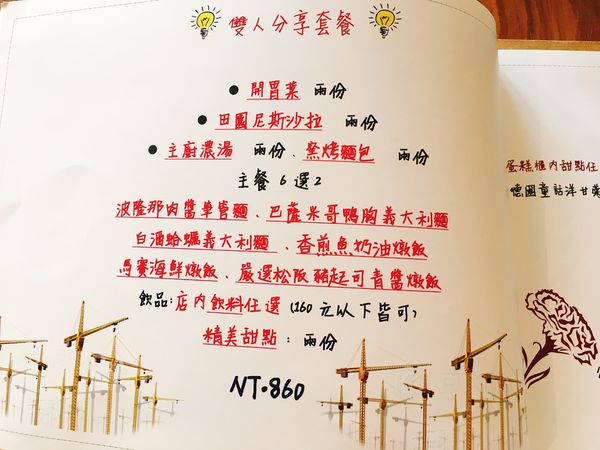 雙人分享套餐
● 開胃菜 兩份
● 田園尼斯沙拉 兩份
● 主廚濃湯 兩份、窯烤麵包 兩份
主餐 6 選 2
波隆那肉醬車管麵、巴薩米哥鴨胸義大利麵
白酒蛤蠣義大利麵、香煎魚奶油燉飯
馬賽海鮮燉飯、嚴選松阪豬起司青醬燉飯
飲品:店內飲料任選 (160元以下皆可)
精美甜點:兩份
NT.860
蛋糕櫃內甜點任
德國童話洋甘菊